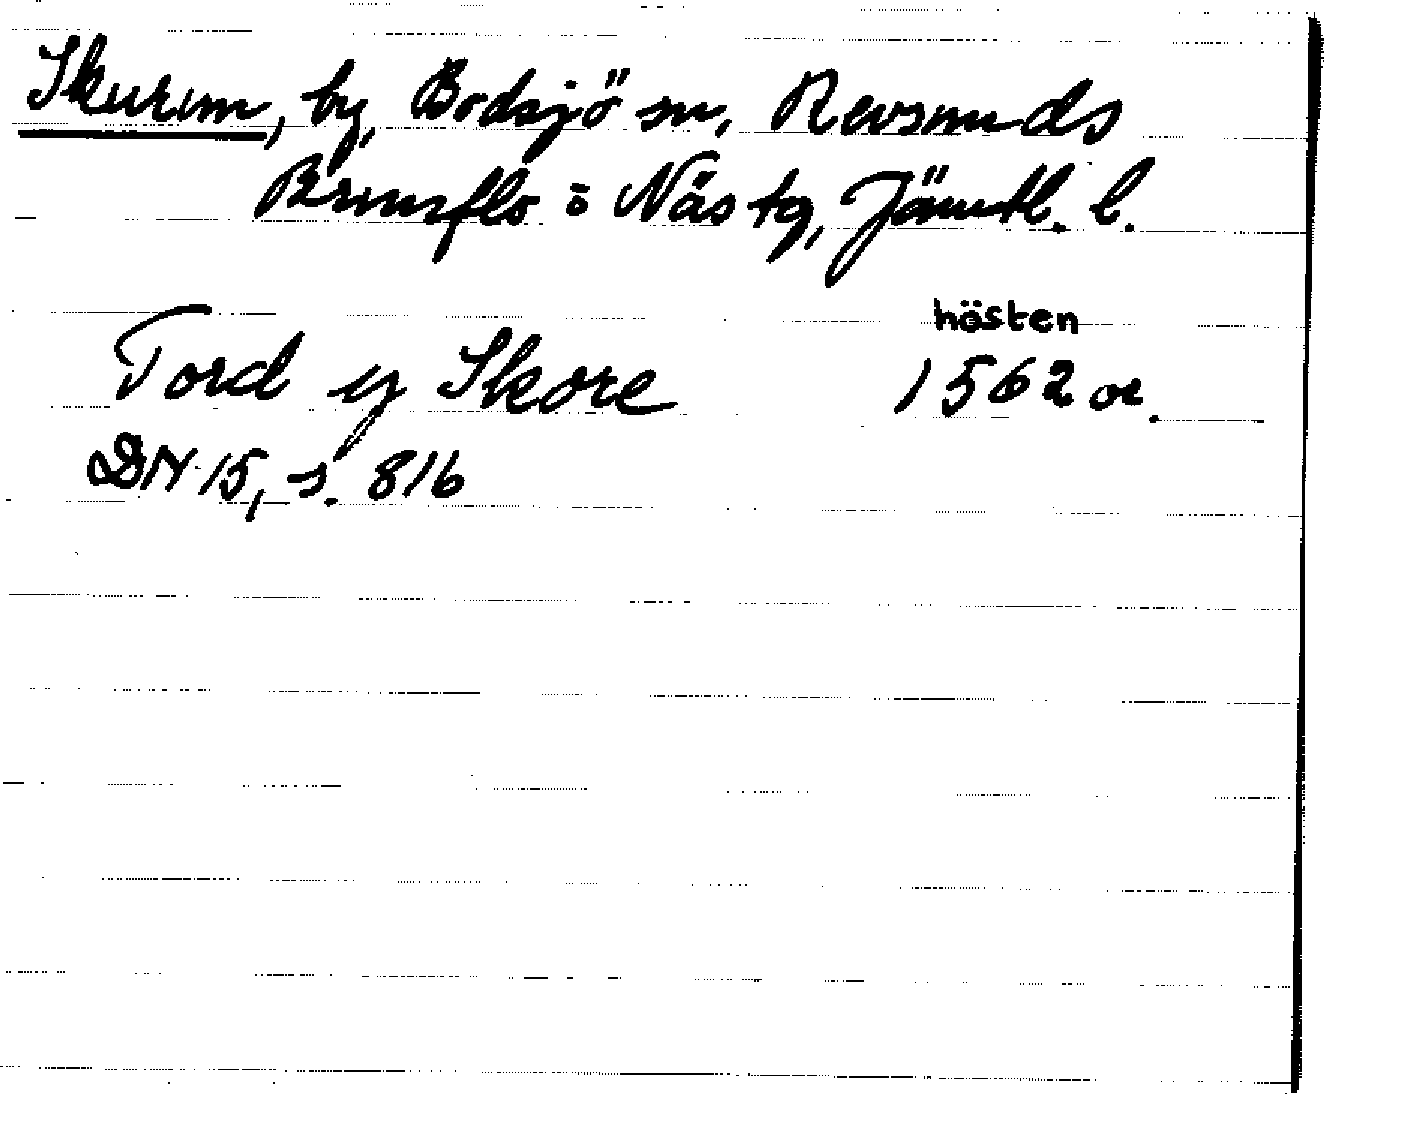 Skurun, by, Bodsjö sn, Revsunds
Brunflo o Näs tg, Jämtl. l.
hösten
Tord ij Skore 1562 or.
DN 15, s. 816